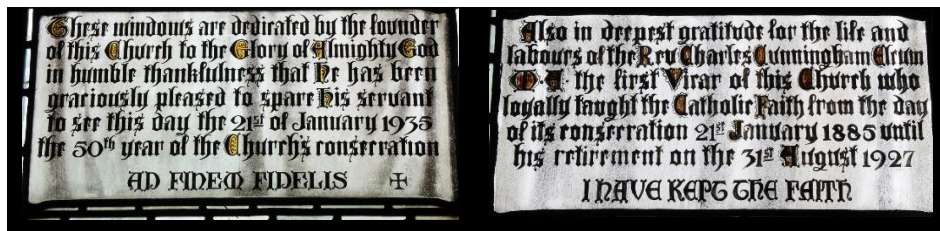 These windows are dedicated by the founder
of this Church to the Glory of Almighty God
in humble thankfulness that He has been
graciously pleased to spare his servant
to see this day the 21st of January 1935
the 50th year of the Church's consecration
AD FINEM FIDELIS ✠
Also in deepest gratitude for the life and
labours of the Rev Charles Cunningham Elcum
M·A· the first Vicar of this Church who
loyally taught the Catholic Faith from the day
of its consecration 21st January 1885 until
his retirement on the 31st August 1927
I HAVE KEPT THE FAITH